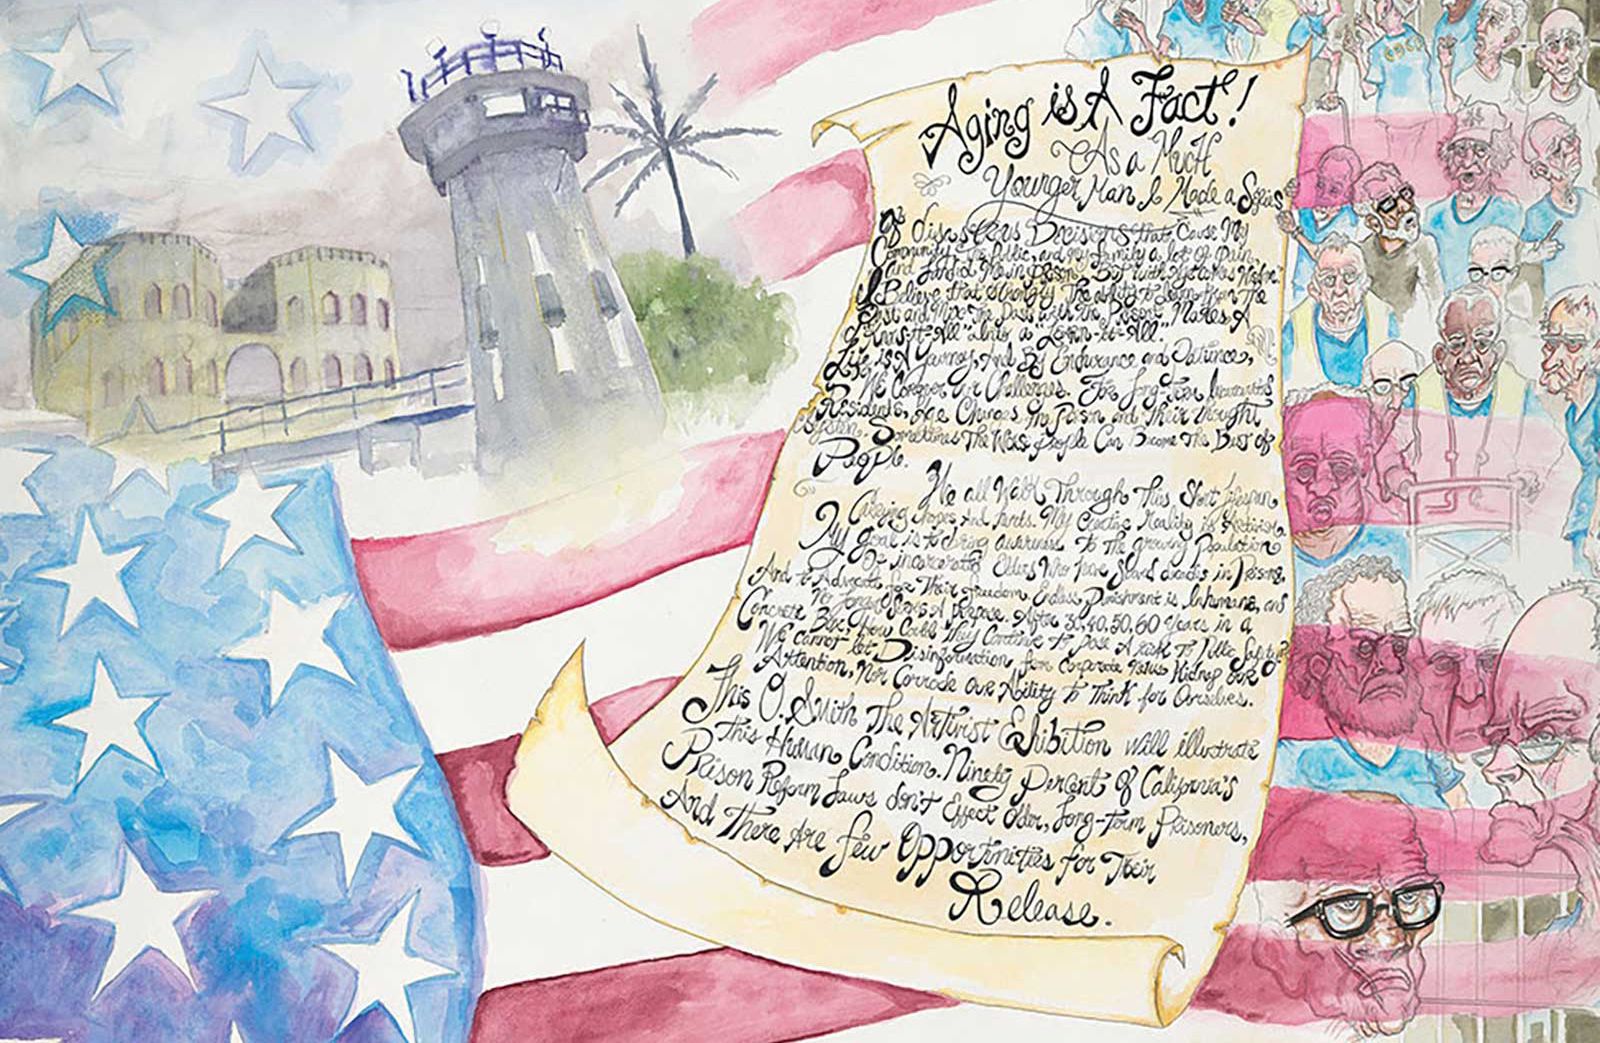 Aging is A Fact!
As a Much
Younger Man I Made a Series
of disastrous Decisions that Cause My
Community, The Public, and my Family a lot of Pain,
and Landed Me in Prison. But with
I Believe that strongly The ability to learn from The
Past and Mix The Past with the Present Makes A
"Know-it-All" into a "Learn-it-All".
Life is A Journey, And By Endurance and Patience,
We Conquer Our Challenges. For Long-Term Incarcerated
Residents, Age Changes the Person and Their thought
System. Sometimes The Worst People Can Become The Best of
People.
We all Walk Through This Short lifespan
Carrying hopes And hurts. My Creative Reality is Activism.
My goal is to bring awareness to The growing Population
Of incarcerated Elders Who have Served decades in Prisons,
And to Advocate for Their Freedom. Endless Punishment is Inhumane, and
No longer Serves A purpose. After 30, 40, 50, 60 years in a
Concrete Box, How Could They Continue to pose A risk to Public Safety?
We cannot let Disinformation from Corporate News Kidnap our
Attention, Nor Corrode our Ability to Think for Ourselves.
This O. Smith The Artivist Exhibition will illustrate
This Human Condition. Ninety Percent of California's
Prison Reform Laws don't Effect Older, Long-Term Prisoners,
And There Are few Opportunities for Their
Release.
CDCR